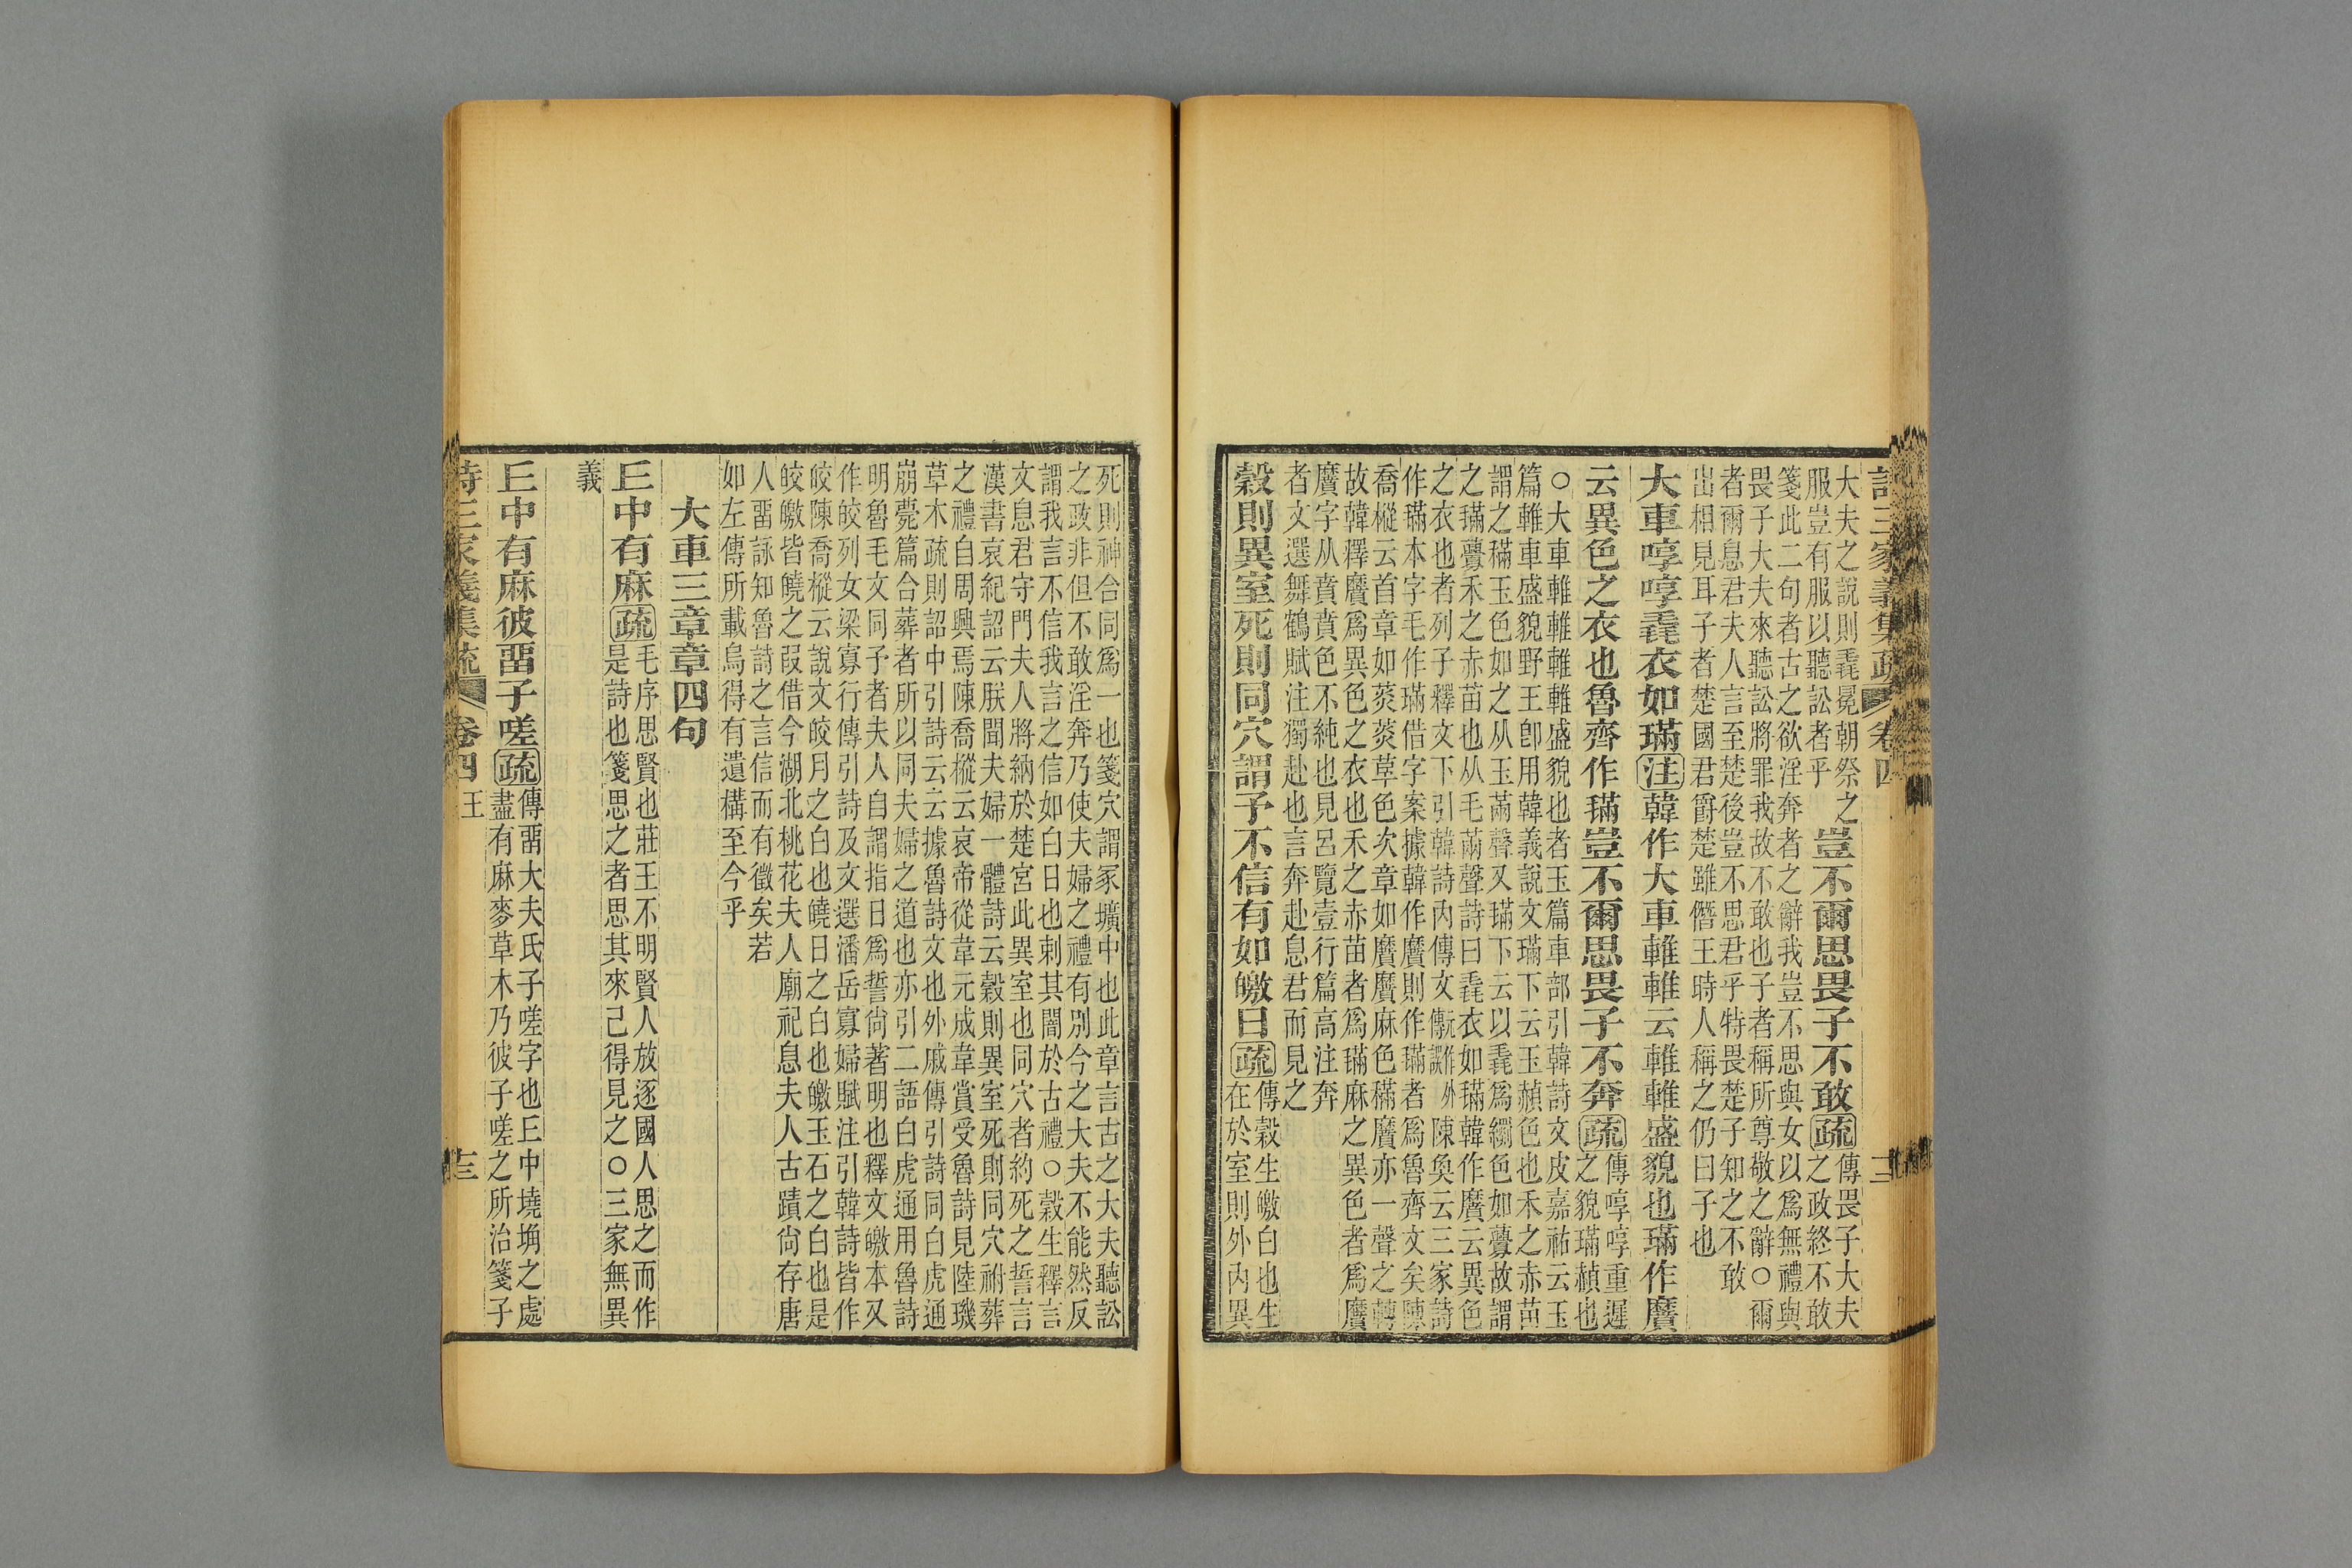 詩三家義集疏 卷四
大夫之說則毳冕朝祭之
服豈有服以聽訟者乎
豈不爾思畏子不敢疏
傳畏子大夫
之政終不敢
箋此二句者古之欲淫奔者之辭我豈不思與女以爲無禮與
畏子大夫來聽訟將罪我故不敢也子者稱所尊敬之辭○爾
者爾息君夫人言至楚後豈不思君乎特畏楚子知之不敢
出相見耳子者楚國君爵楚雖僭王時人稱之仍曰子也
大車啍啍毳衣如璊注韓作大車䡓䡓云䡓䡓盛貌也璊作黂
云異色之衣也魯齊作璊豈不爾思畏子不奔疏
傳啍啍重遲
之貌璊赬也
○大車䡓䡓䡓䡓盛貌也者玉篇車部引韓詩文皮嘉祐云玉
篇䡓車盛貌野王卽用韓義說文璊下云玉赬色也禾之赤苗
謂之䅼玉色如之从玉㒼聲又璊下云以毳爲繝色如虋故謂
之璊虋禾之赤苗也从毛㒼聲詩曰毳衣如璊韓作黂云異色
之衣也者列子釋文下引韓詩內傳文陳奐云三家詩
作璊本字毛作璊借字案據韓作黂則作璊者爲魯齊文矣陳
喬樅云首章如菼菼草色次章如黂黂麻色䅼黂亦一聲之轉
故韓釋黂爲異色之衣也禾之赤苗者爲璊麻之異色者爲黂
黂字从賁賁色不純也見呂覽壹行篇高注奔
者文選舞鶴賦注獨赴也言奔赴息君而見之
穀則異室死則同穴謂予不信有如皦日疏
傳穀生皦白也生
在於室則外內異
死則神合同爲一也箋穴謂冢壙中也此章言古之大夫聽訟
之政非但不敢淫奔乃使夫婦之禮有別今之大夫不能然反
謂我言不信我言之信如白日也刺其闇於古禮○穀生釋言
文息君守門夫人將納於楚宮此異室也同穴者約死之誓言
漢書哀紀詔云朕聞夫婦一體詩云穀則異室死則同穴祔葬
之禮自周興焉陳喬樅云哀帝從韋元成韋賞受魯詩見陸璣
草木疏則詔中引詩云云據魯詩文也外戚傳引詩同白虎通
崩薨篇合葬者所以同夫婦之道也亦引二語白虎通用魯詩
明魯毛文同予者夫人自謂指日爲誓尙著明也釋文皦本又
作皎列女梁寡行傳引詩及文選潘岳寡婦賦注引韓詩皆作
皎陳喬樅云說文皎月之白也曉日之白也皦玉石之白也是
皎皦皆曉之叚借今湖北桃花夫人廟祀息夫人古蹟尙存唐
人畱詠知魯詩之言信而有徵矣若
如左傳所載烏得有遺構至今乎
大車三章章四句
丘中有麻疏
毛序思賢也莊王不明賢人放逐國人思之而作
是詩也箋思之者思其來己得見之○三家無異
義
丘中有麻彼畱子嗟疏
傳畱大夫氏子嗟字也丘中墝埆之處
盡有麻麥草木乃彼子嗟之所治箋子
詩三家義集疏 卷四 王 十三